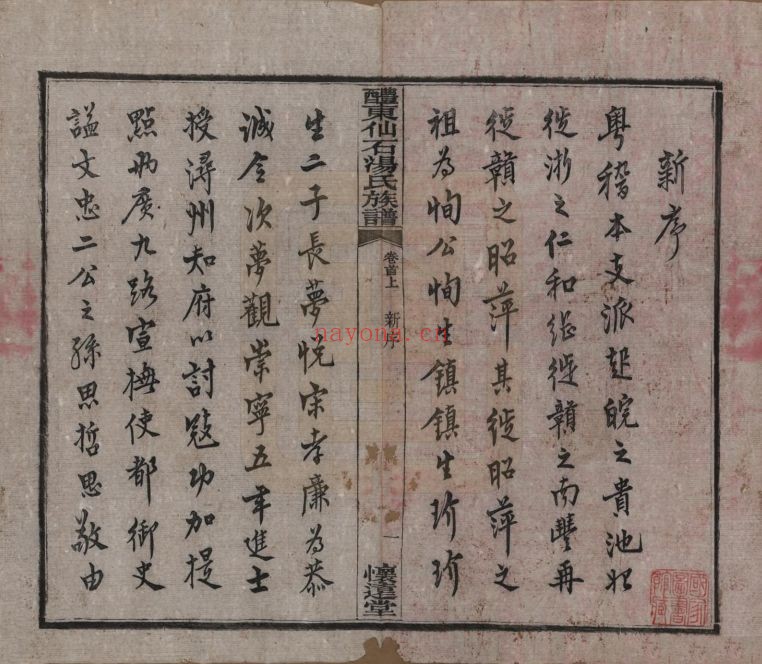 新序
粤稽本支派起皖之貴池始
徙浙之仁和繼徙贛之南豐再
徙贛之昭萍其徙昭萍之
祖為恂公恂生鎮鎮生玠玠
醴東仙石湯氏族譜
卷首上 新序
一
懷遠堂
生二子長夢悅宗孝廉為恭
誠令次夢觀崇寧五年進士
授潯州知府以討冠功加提
點兩廣九路宣撫使都御史
謚文忠二公之孫思哲思敬由
nayona.cn